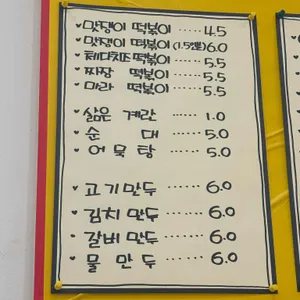 맛쟁이 떡볶이 ····· 4.5
맛쟁이 떡볶이 (1.5인분) 6.0
체다치즈 떡볶이 ····· 5.5
짜장 떡볶이 ····· 5.5
마라 떡볶이 ····· 5.5
삶은 계란 ····· 1.0
순 대 ····· 5.0
어묵탕 ····· 5.0
고기만두 ······ 6.0
김치만두 ······ 6.0
갈비만두 ······ 6.0
물만두 ······ 6.0